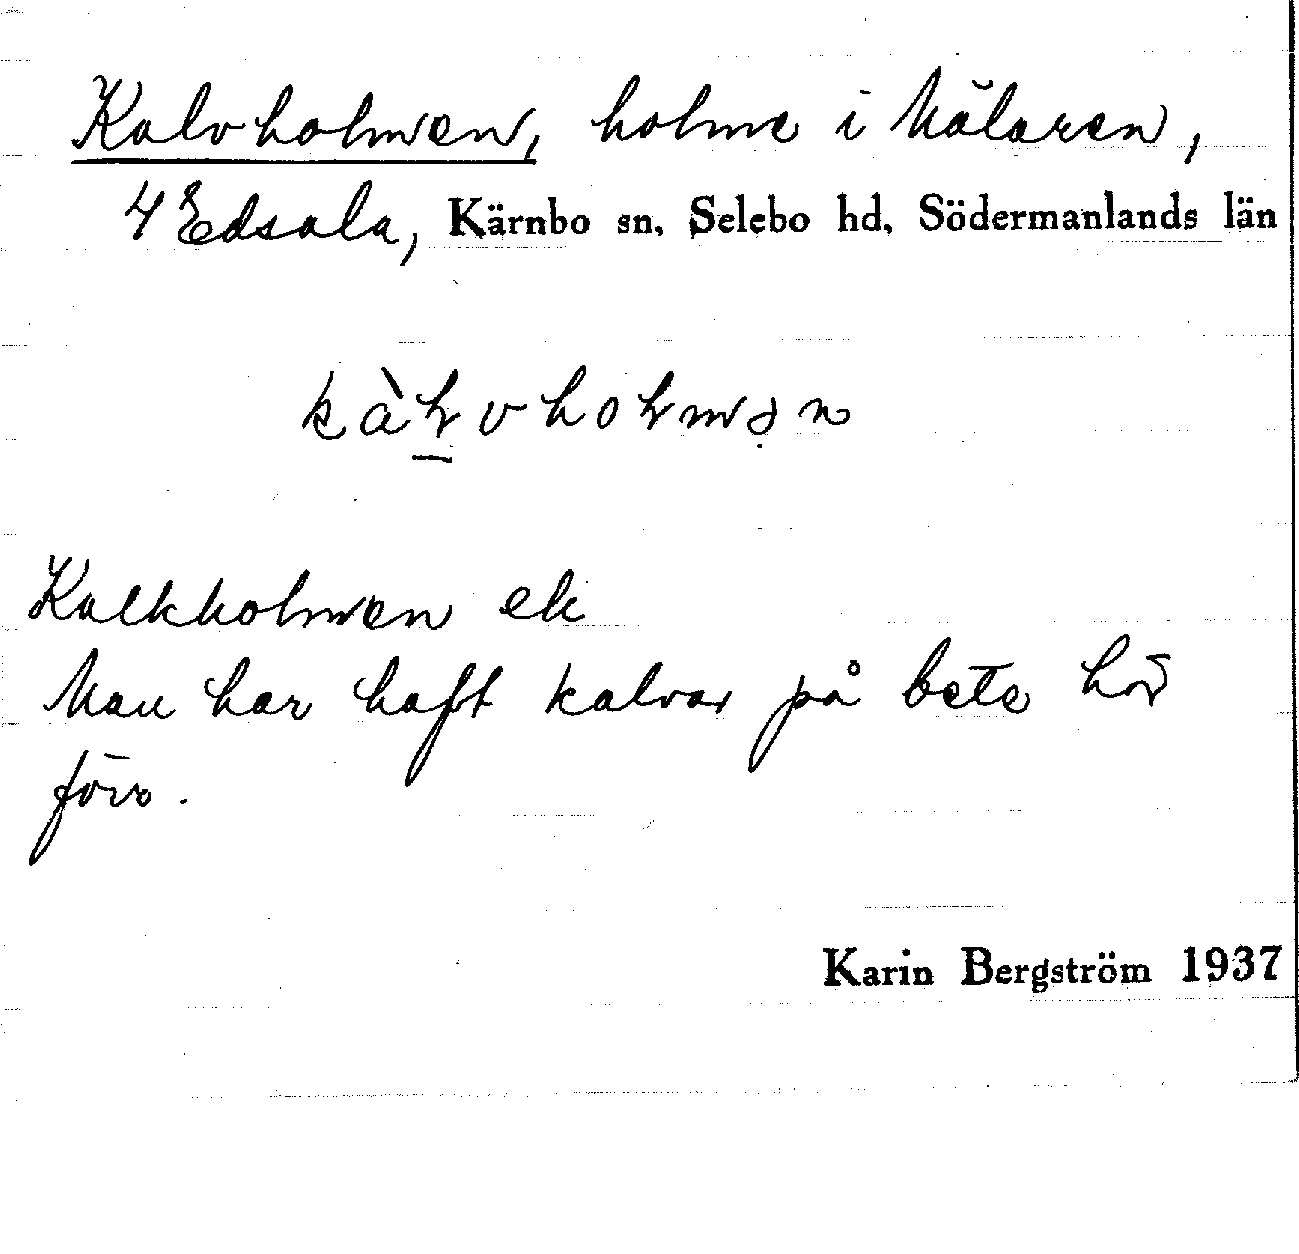 Kalvholmen, holme i Mälaren,
4 Edsala, Kärnbo sn, Selebo hd, Södermanlands län
kàɫvhoɫmən
Kalkholmen ek
Man har haft kalvar på bete här
förr.
Karin Bergström 1937